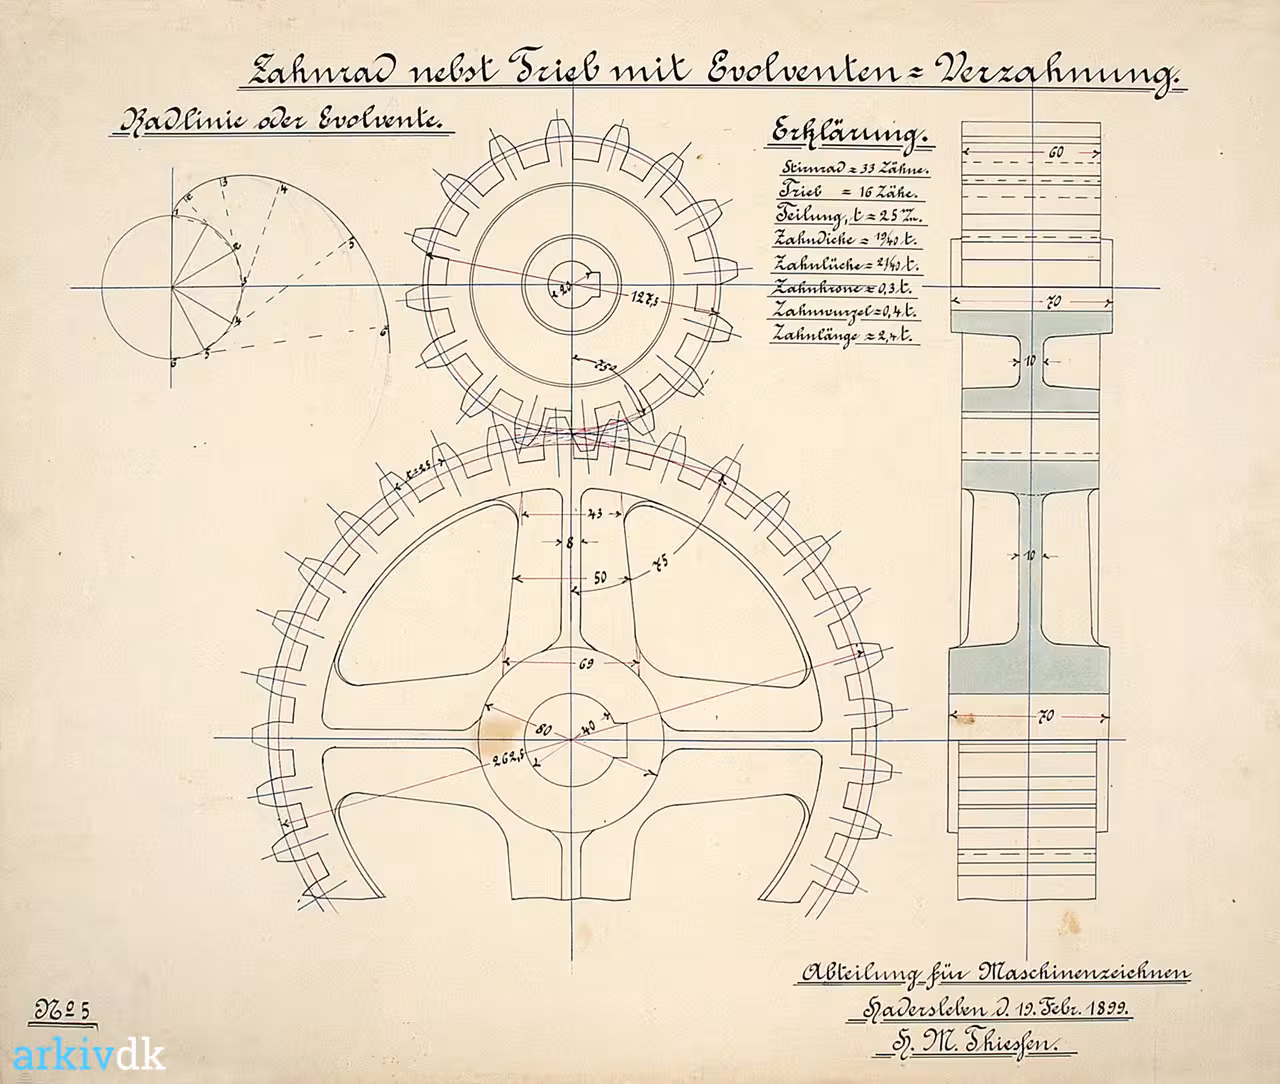 Zahnrad nebst Trieb mit Evolventen = Verzahnung.
Radlinie oder Evolvente.
1
2
3
4
5
6
2
3
4
5
6
Erklärung.
Stirnrad = 33 Zähne.
Trieb = 16 Zähe.
Teilung, t = 25 m/m.
Zahndicke = 19/40 t.
Zahnlücke = 21/40 t.
Zahnkrone = 0,3 t.
Zahnwurzel = 0,4 t.
Zahnlänge = 2,4 t.
20
127,5
75°
t=25
43
8
50
75
69
80
40
262,5
60
70
10
10
70
Abteilung für Maschinenzeichnen
Hadersleben d. 19. Febr. 1899.
H. M. Thiessen.
No 5
arkivdk